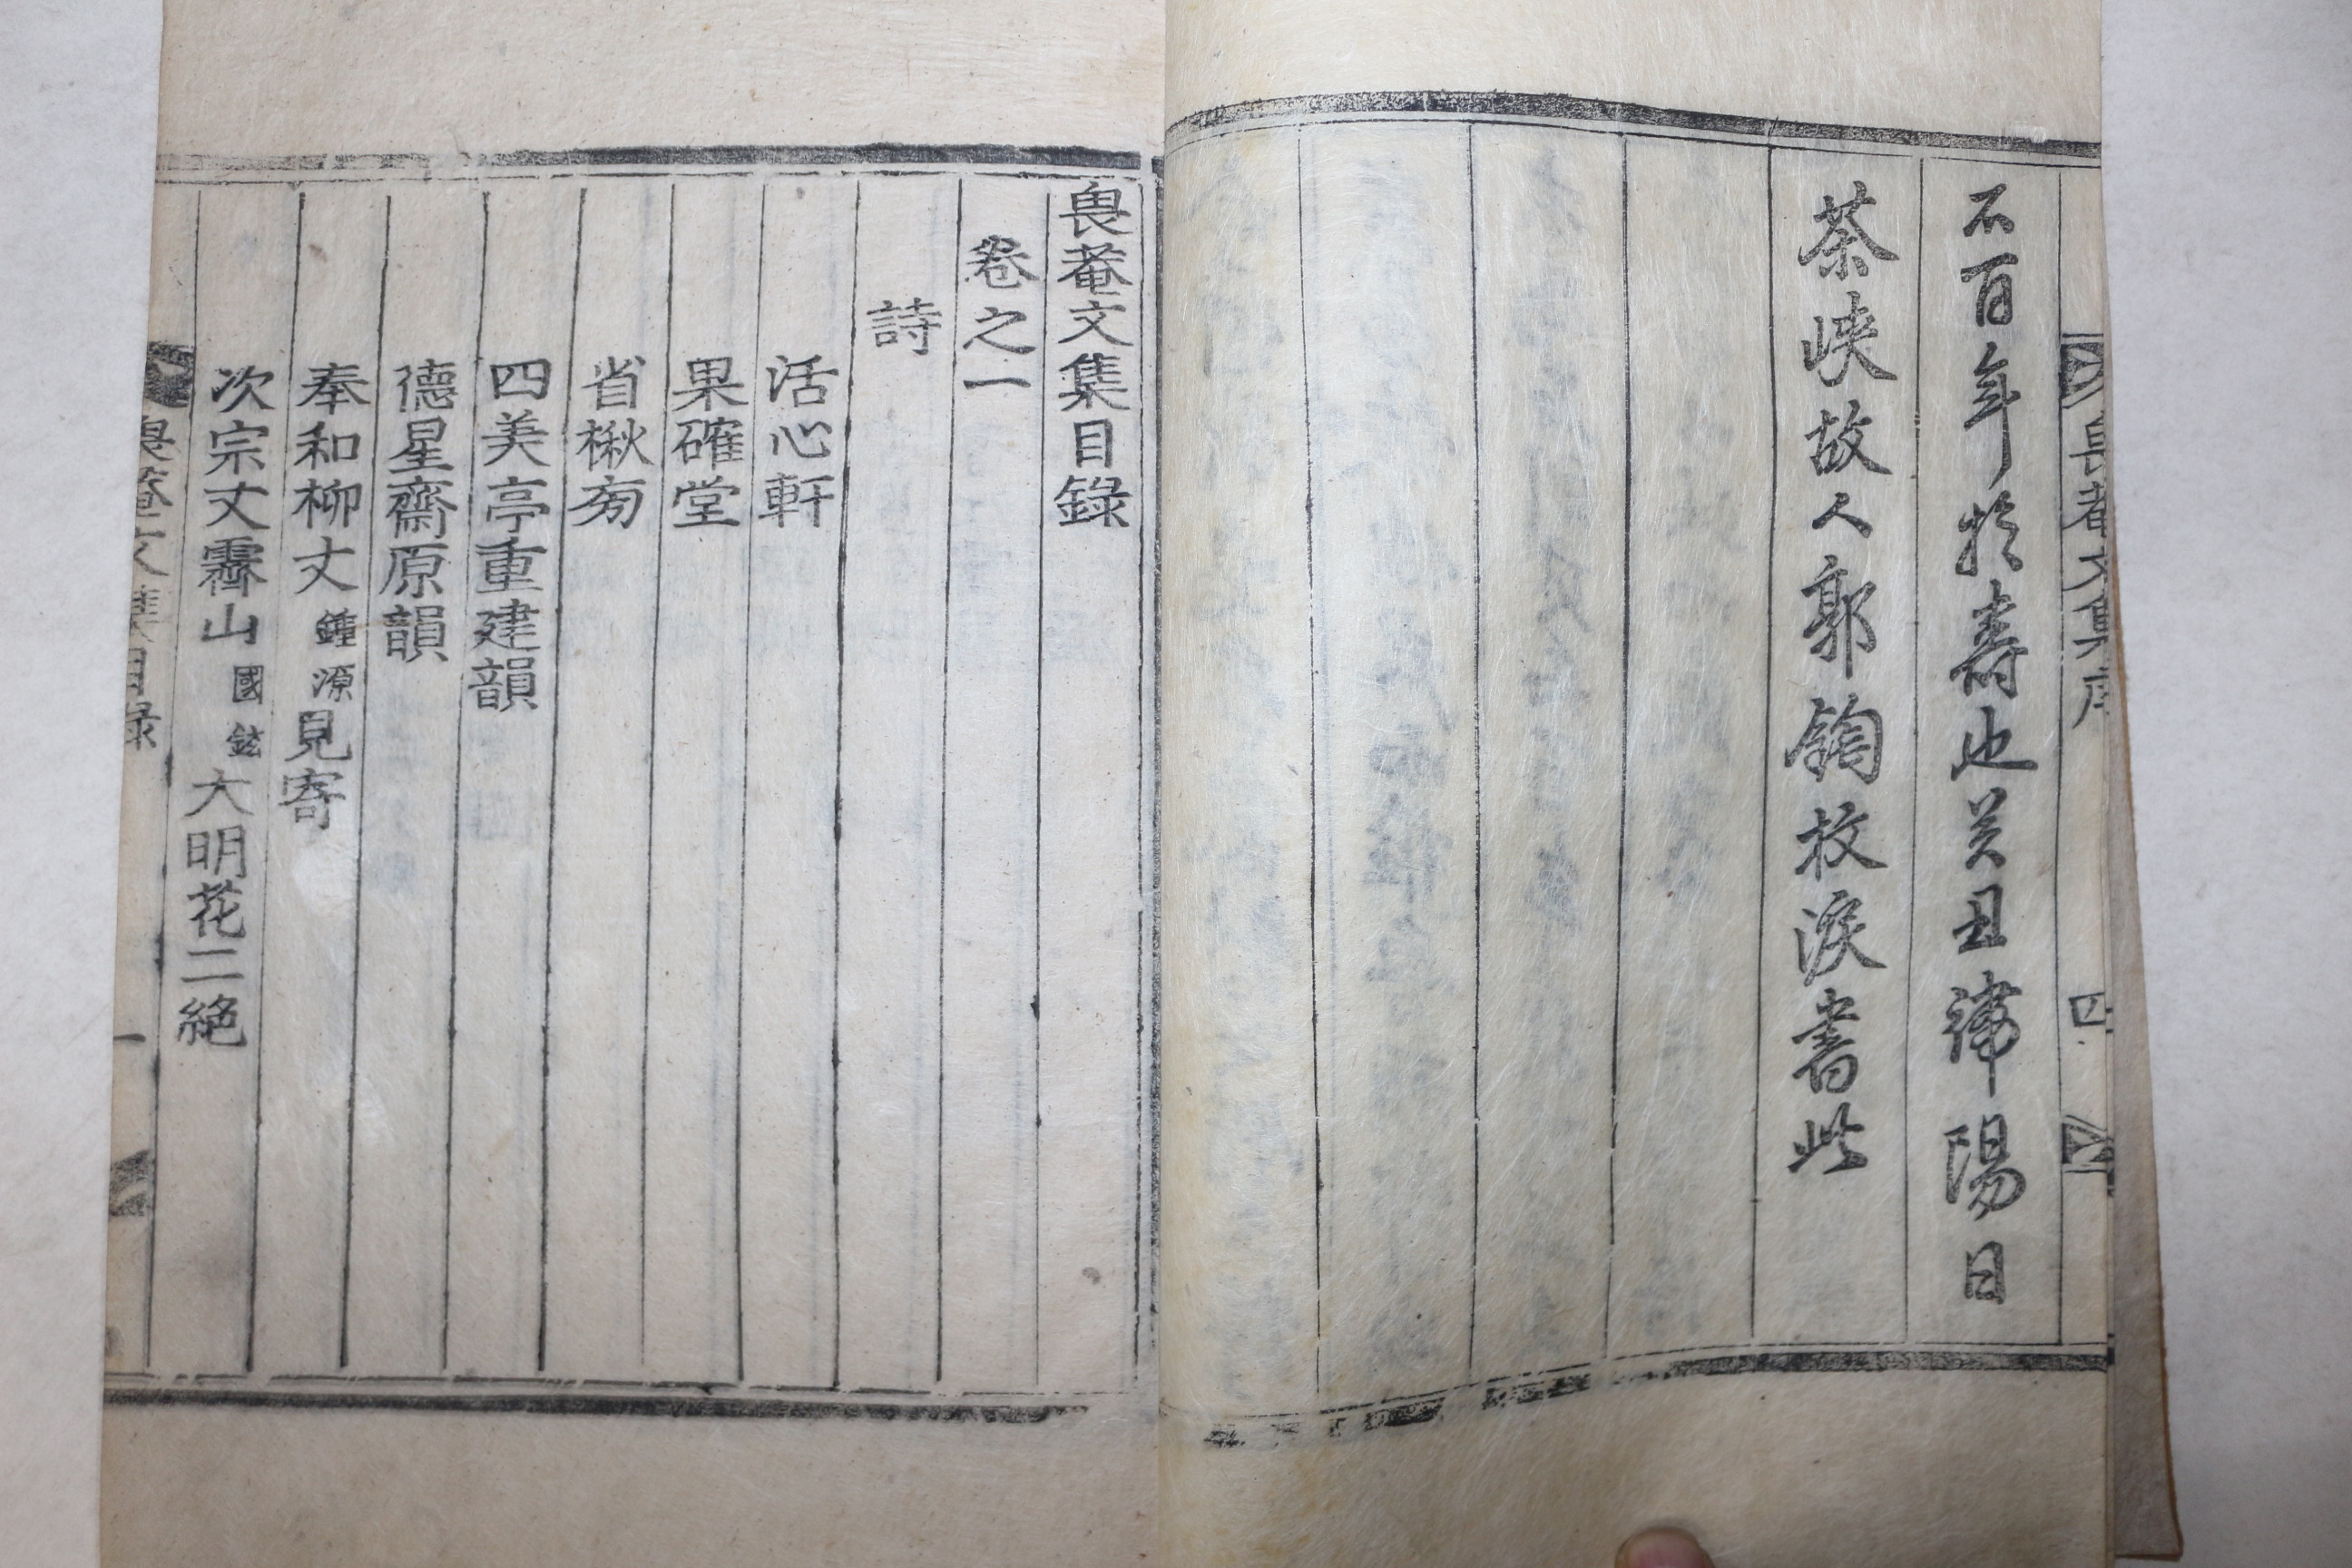 畏菴文集序 四
不百年於壽也癸丑 陽日
茶峽故人郭鋾抆淚書此
畏菴文集目錄
卷之一
詩
活心軒
果確堂
省楸
四美亭重建韻
德星齋原韻
奉和柳丈鍾源見寄
次宗丈霽山國鉉大明花二絶
畏菴文集目錄 一